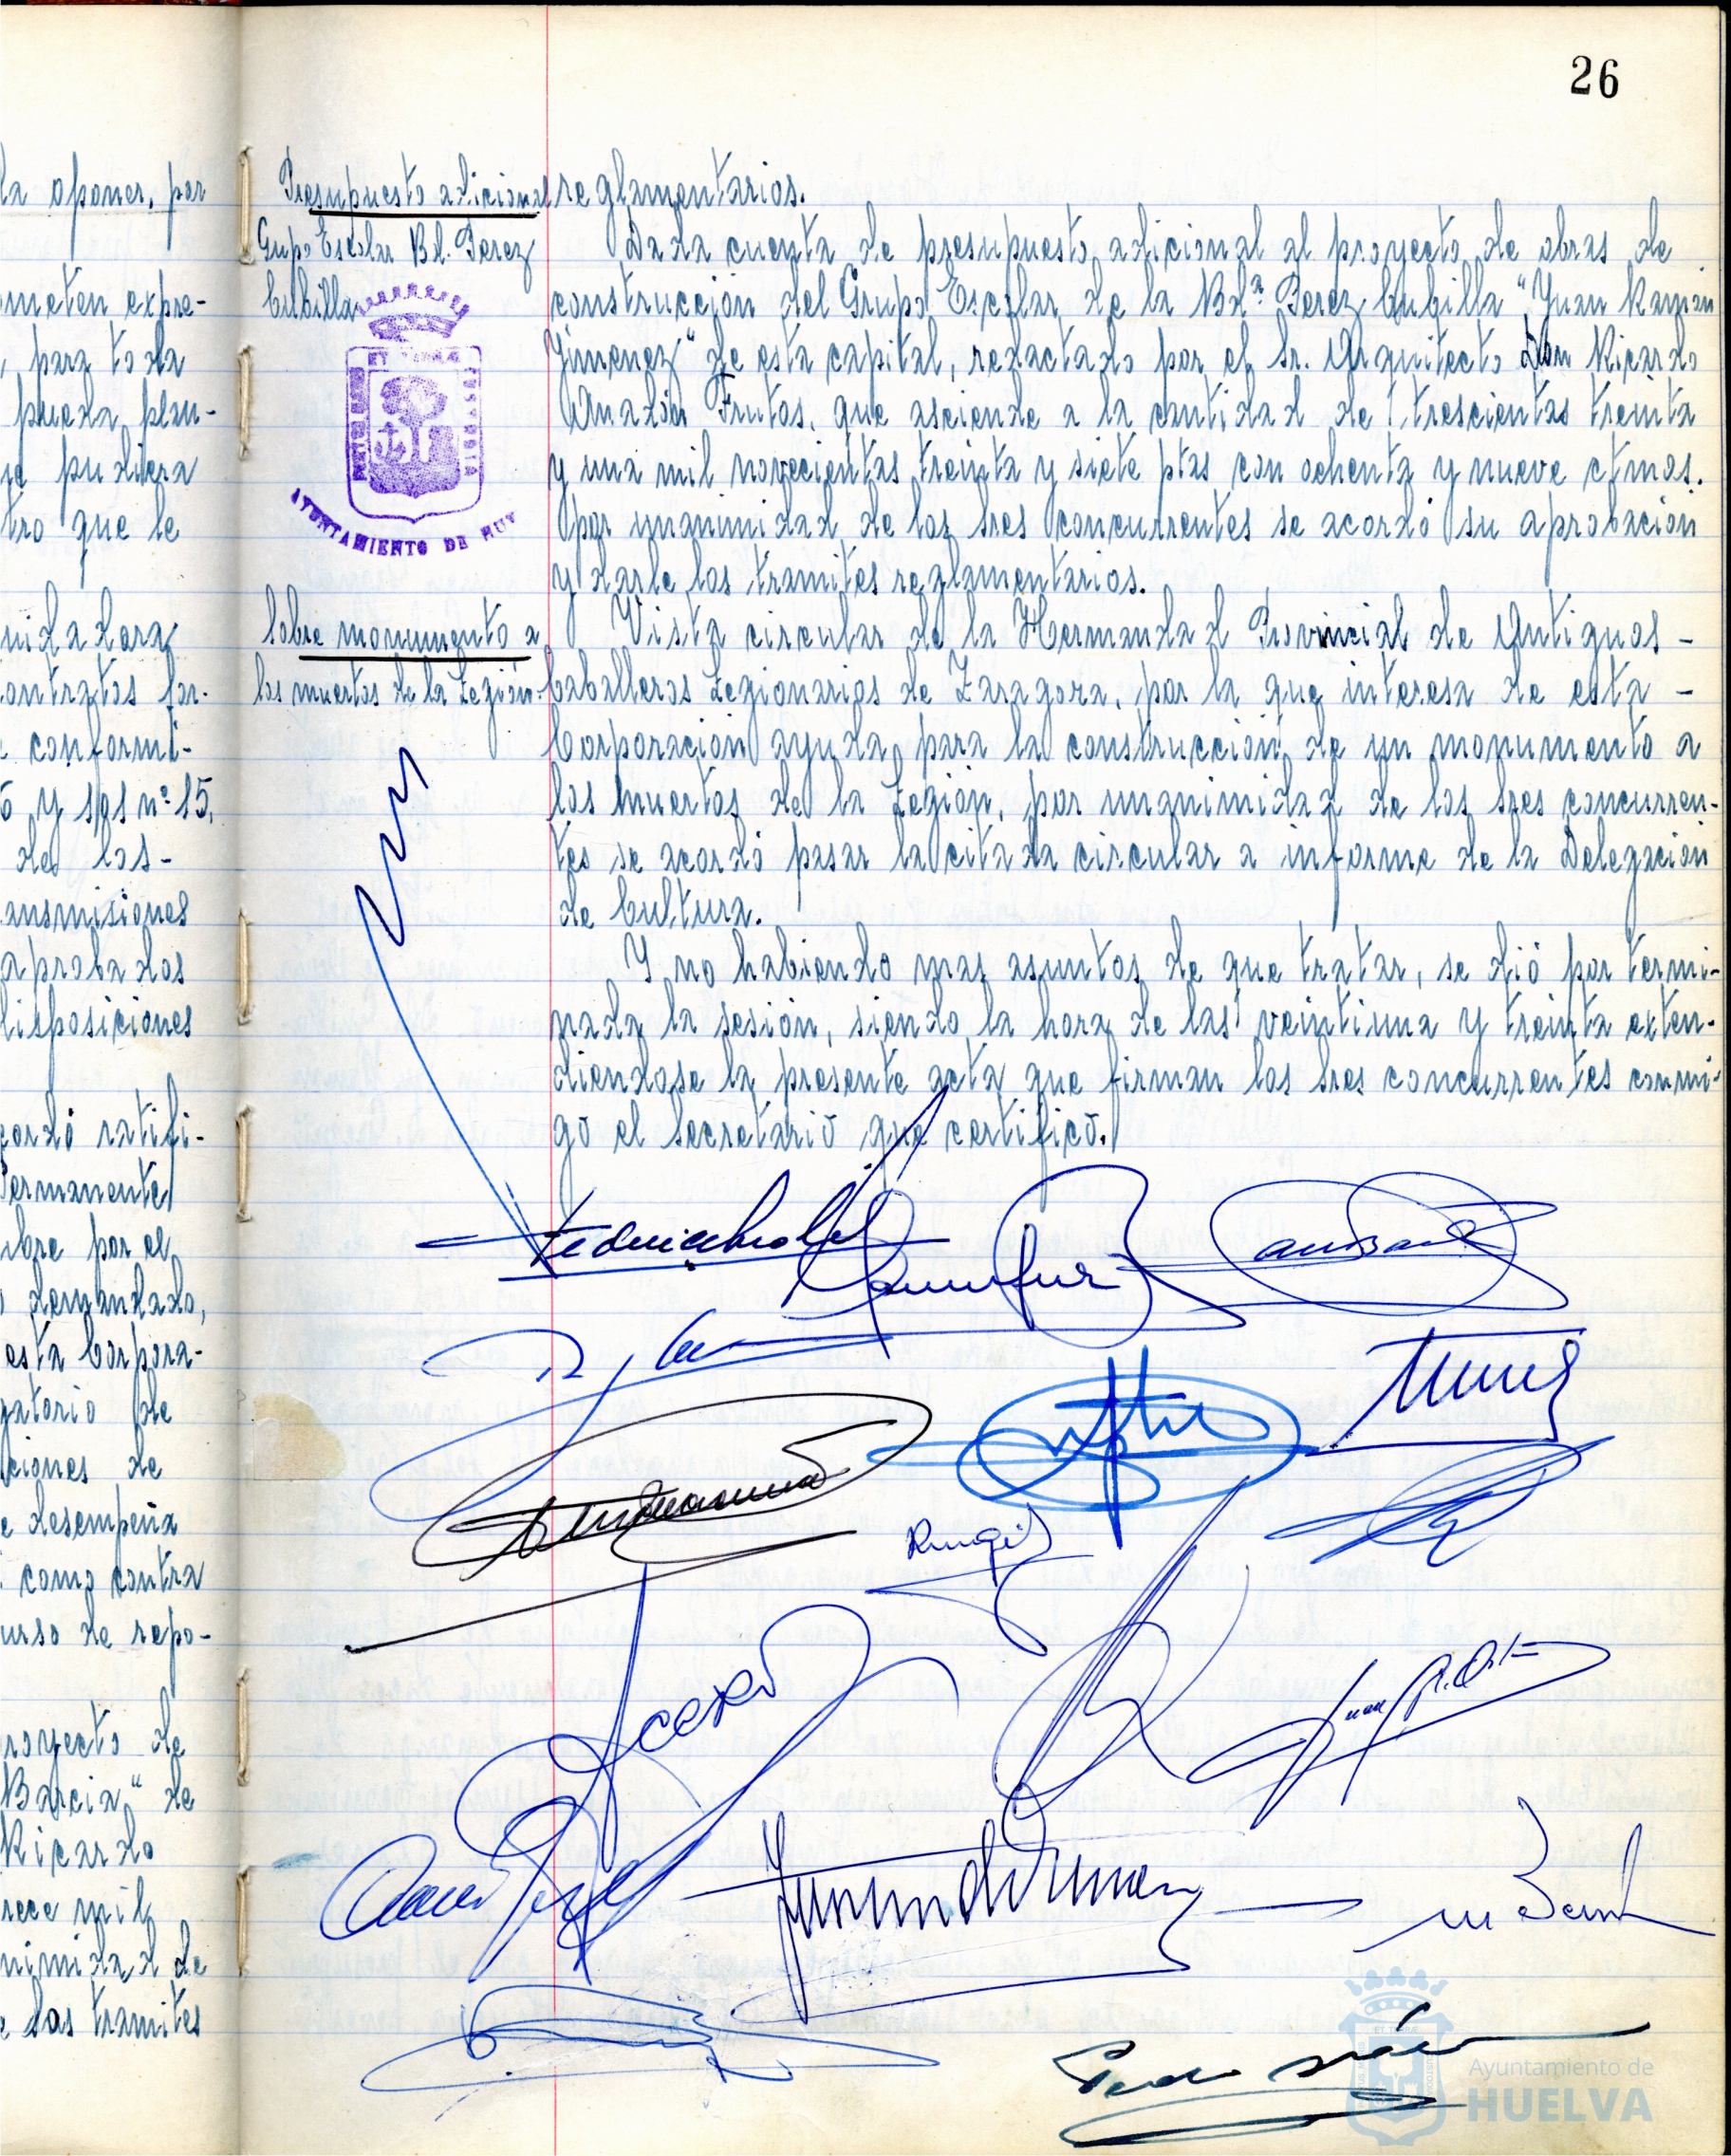 26
la oponer, por
meten expre-
, para toda
pueda plan-
pudiera
tro que le
ontratos for-
conformi-
y sgs nº 15,
de los-
ansmisiones
aprobados
disposiciones
cordó ratifi-
Permanente
mbre por el
demandado,
esta Corpora-
gatorio de
ciones de
e desempeña
como contra
urso de repo-
royecto de
Barcia" de
Ricardo
rece mil
nimidad de
e los tramites
Presupuesto adicional
Gupo Escolar Bd. Perez
Cubilla
AYUNTAMIENTO DE HUE
reglamentarios.
Dada cuenta de presupuesto adicional al proyecto de obras de
construccion del Grupo Escolar de la Bdª Perez Cubilla "Juan Ramon
Jimenez" de esta capital, redactado por el Sr. Arquitecto Don Ricardo
Anadón Frutos, que asciende a la cantidad de trescientas treinta
y una mil novecientas treinta y siete ptas con ochenta y nueve ctmos.
por unanimidad de los sres concurrentes se acordó su aprobacion
y darle los tramites reglamentarios.
Sobre monumento a
los muertos de la Legión.
Vista circular de la Hermandad Provincial de Antiguos-
Caballeros Legionarios de Zaragoza, por la que interesa de esta-
Corporacion ayuda para la construcción de un monumento a
los muertos de la Legion, por unanimidad de los sres concurren-
tes se acordó pasar la citada circular a informe de la Delegacion
de Cultura.
Y no habiendo mas asuntos de que tratar, se dió por termi-
nada la sesión, siendo la hora de las veintiuna y treinta exten-
diendose la presente acta que firman los sres concurrentes conmi-
go el secretario que certifico.
Ayuntamiento de
HUELVA